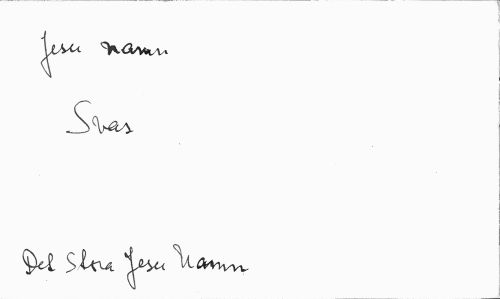 Jesu namn
Svar
Det Stora Jesu Namn